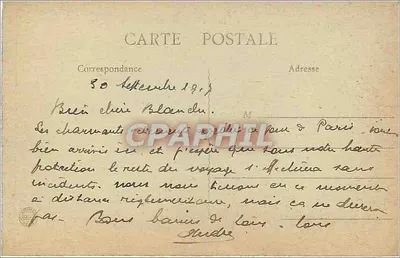 CARTE POSTALE
Correspondance Adresse
30 Septembre 19
Bien chère Blanche.
M
Les charmants de Paris sont
bien arrivés ici et j'espère que sous votre haute
protection le reste du voyage s'effectuera sans
incidents. nous nous tenons en ce moment
à distance réglementaire, mais ça ne durera
pas. Bons baisers de tous. tous
André